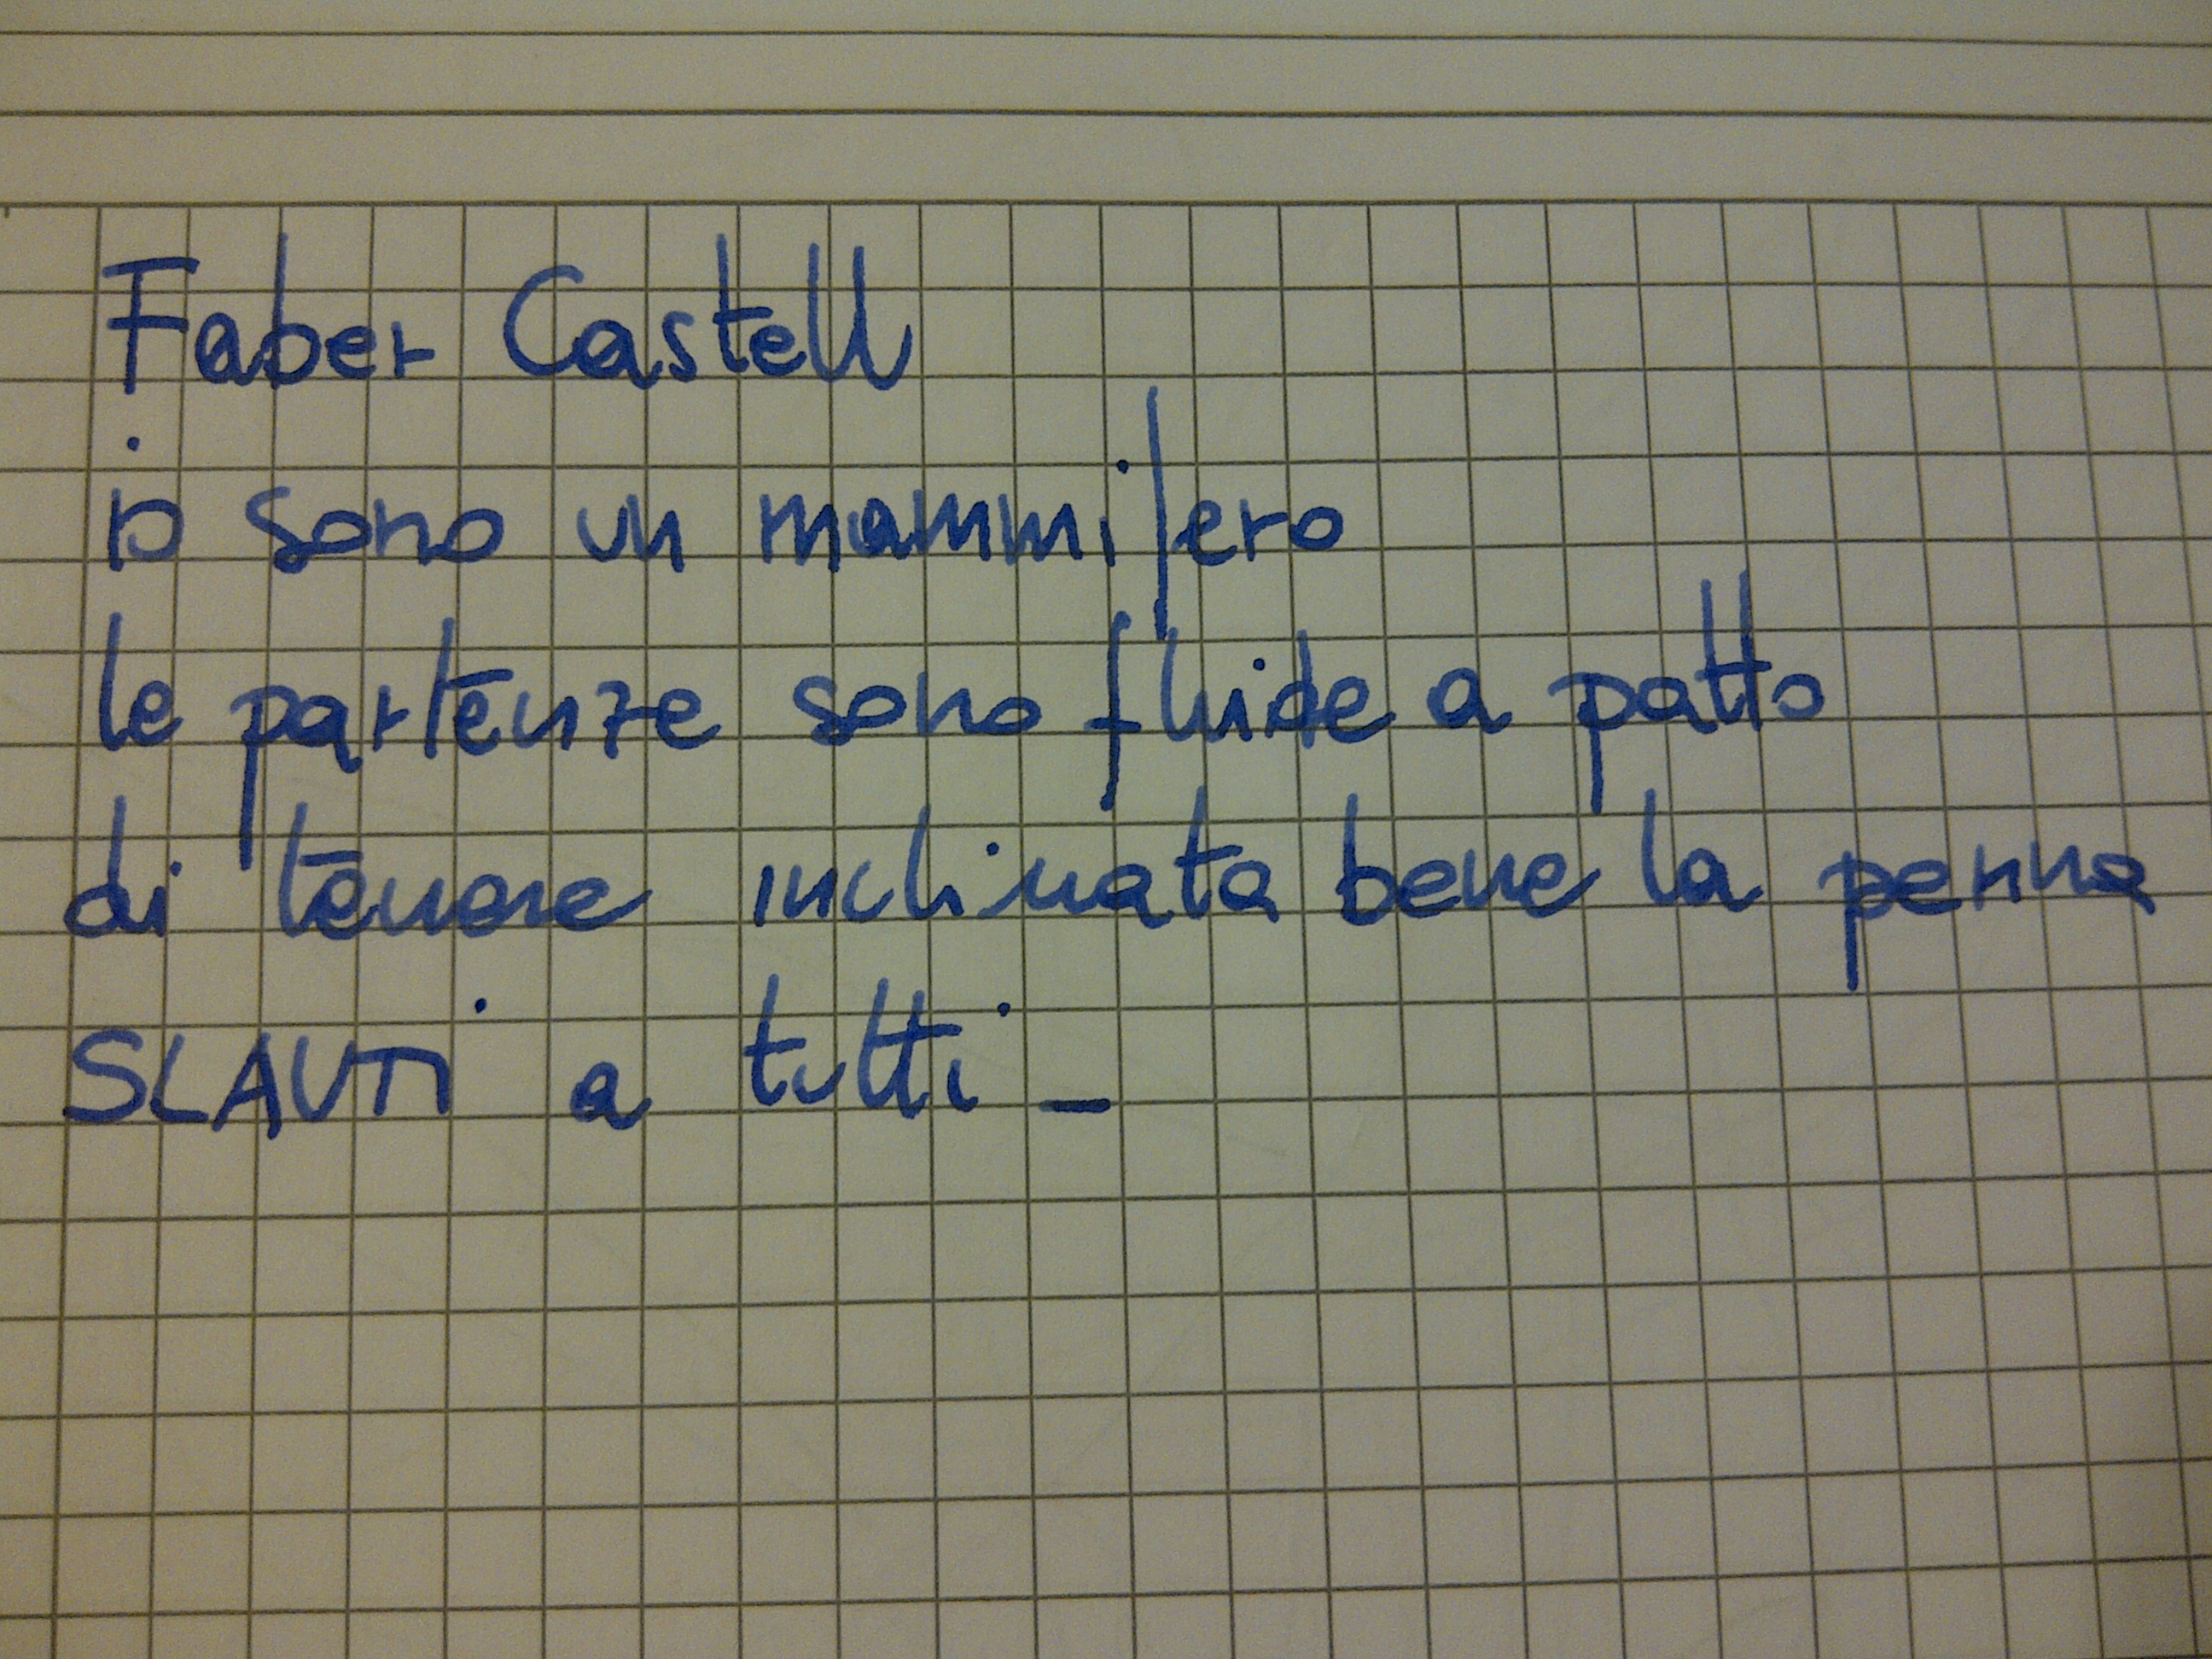 Faber Castell
io sono un mammifero
le partenze sono fluide a patto
di tenere inclinata bene la penna
SLAUTi a tutti -